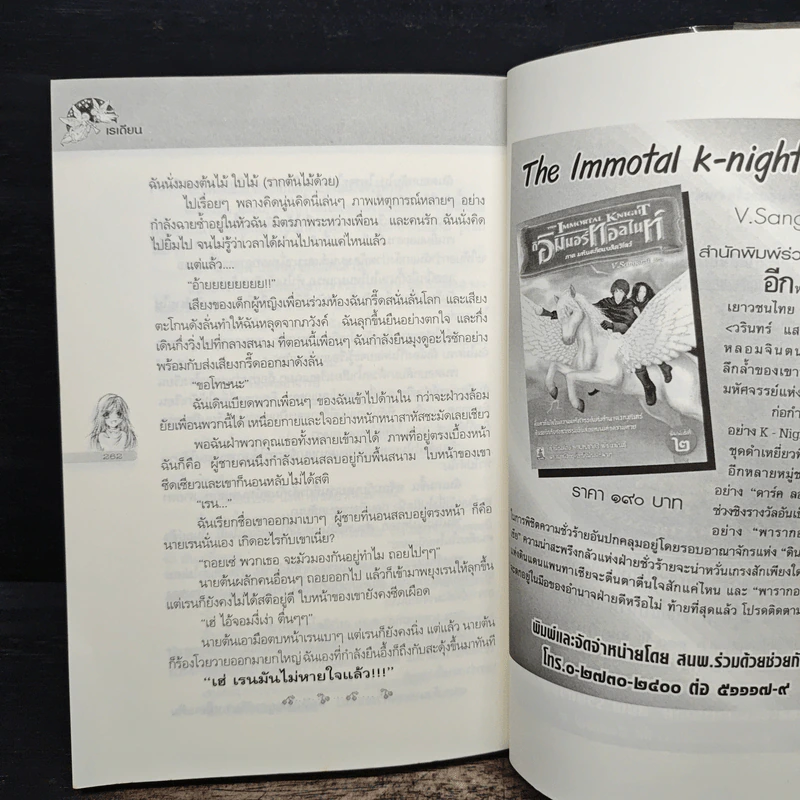 เรเดียน
ฉันนั่งมองต้นไม้ ใบไม้ (รากต้นไม้ด้วย)
ไปเรื่อยๆ พลางคิดนู่นคิดนี่เล่นๆ ภาพเหตุการณ์หลายๆ อย่าง
กำลังฉายซ้ำอยู่ในหัวฉัน มิตรภาพระหว่างเพื่อน และคนรัก ฉันนั่งคิด
ไปยิ้มไป จนไม่รู้ว่าเวลาได้ผ่านไปนานแค่ไหนแล้ว
แต่แล้ว....
“อ๊ายยยยยยยย!!”
เสียงของเด็กผู้หญิงเพื่อนร่วมห้องฉันกรี๊ดสนั่นลั่นโลก และเสียง
ตะโกนดังลั่นทำให้ฉันหลุดจากภวังค์ ฉันลุกขึ้นยืนอย่างตกใจ และกึ่ง
เดินกึ่งวิ่งไปที่กลางสนาม ที่ตอนนี้เพื่อนๆ ฉันกำลังยืนมุงดูอะไรซักอย่าง
พร้อมกับส่งเสียงกรี๊ดออกมาดังลั่น
“ขอโทษนะ”
ฉันเดินเบียดพวกเพื่อนๆ ของฉันเข้าไปด้านใน กว่าจะฝ่าวงล้อม
ยัยเพื่อนพวกนี้ได้ เหนื่อยกายและใจอย่างหนักหนาสาหัสซะมัดเลยเชียว
พอฉันฝ่าพวกคุณเธอทั้งหลายเข้ามาได้ ภาพที่อยู่ตรงเบื้องหน้า
ฉันก็คือ ผู้ชายคนนึงกำลังนอนสลบอยู่กับพื้นสนาม ใบหน้าของเขา
ซีดเซียวและเขาก็นอนหลับไม่ได้สติ
“เรน...”
ฉันเรียกชื่อเขาออกมาเบาๆ ผู้ชายที่นอนสลบอยู่ตรงหน้า ก็คือ
นายเรนนั่นเอง เกิดอะไรกับเขาเนี่ย?
“ถอยเซ่ พวกเธอ จะมัวมองกันอยู่ทำไม ถอยไปๆๆ”
นายต้นผลักคนอื่นๆ ถอยออกไป แล้วก็เข้ามาพยุงเรนให้ลุกขึ้น
แต่เรนก็ยังคงไม่ได้สติอยู่ดี ใบหน้าของเขายังคงซีดเผือด
“เฮ่ ไอ้จอมงี่เง่า ตื่นๆๆ”
นายต้นเอามือตบหน้าเรนเบาๆ แต่เรนก็ยังคงนิ่ง แต่แล้ว นายต้น
ก็ร้องโวยวายออกมายกใหญ่ ฉันเองที่กำลังยืนอึ้งก็ถึงกับสะดุ้งขึ้นมาทันที
“เฮ่ เรนมันไม่หายใจแล้ว!!!”
282
The Immotal k-night
V.Sang
สำนักพิมพ์ร่ว
อีก
IMMORTAL KNIGHT
ดิอิมมอร์ทอลไนท์
๒
ราคา ๑๙๐ บาท
เยาวชนไทย
<วรินทร์ แส
หลอมจินตน
ลึกล้ำของเขา
มหัศจรรย์แห่ง
ก่อกำ
อย่าง K - Nig
ชุดดำเหยี่ยวพิ
อีกหลายหมู่ช
อย่าง “ดาร์ค ลอ
ช่วงชิงรางวัลอันเ
อย่าง “พารากอ
ในการพิชิตความชั่วร้ายอันปกคลุมอยู่โดยรอบอาณาจักรแห่ง “ดิน
ความน่าสะพรึงกลัวแห่งฝ่ายชั่วร้ายจะน่าหวั่นเกรงสักเพียงใด
แห่งดินแดนแพนทาเซียจะตื่นตาตื่นใจสักแค่ไหน และ “พารากอ
อยู่ในมือของอำนาจฝ่ายดีหรือไม่ ท้ายที่สุดแล้ว โปรดติดตาม
พิมพ์และจัดจำหน่ายโดย สนพ.ร่วมด้วยช่วยกั
โทร.๐-๒๗๓๐-๒๔๐๐ ต่อ ๕๑๑๑๗-๙